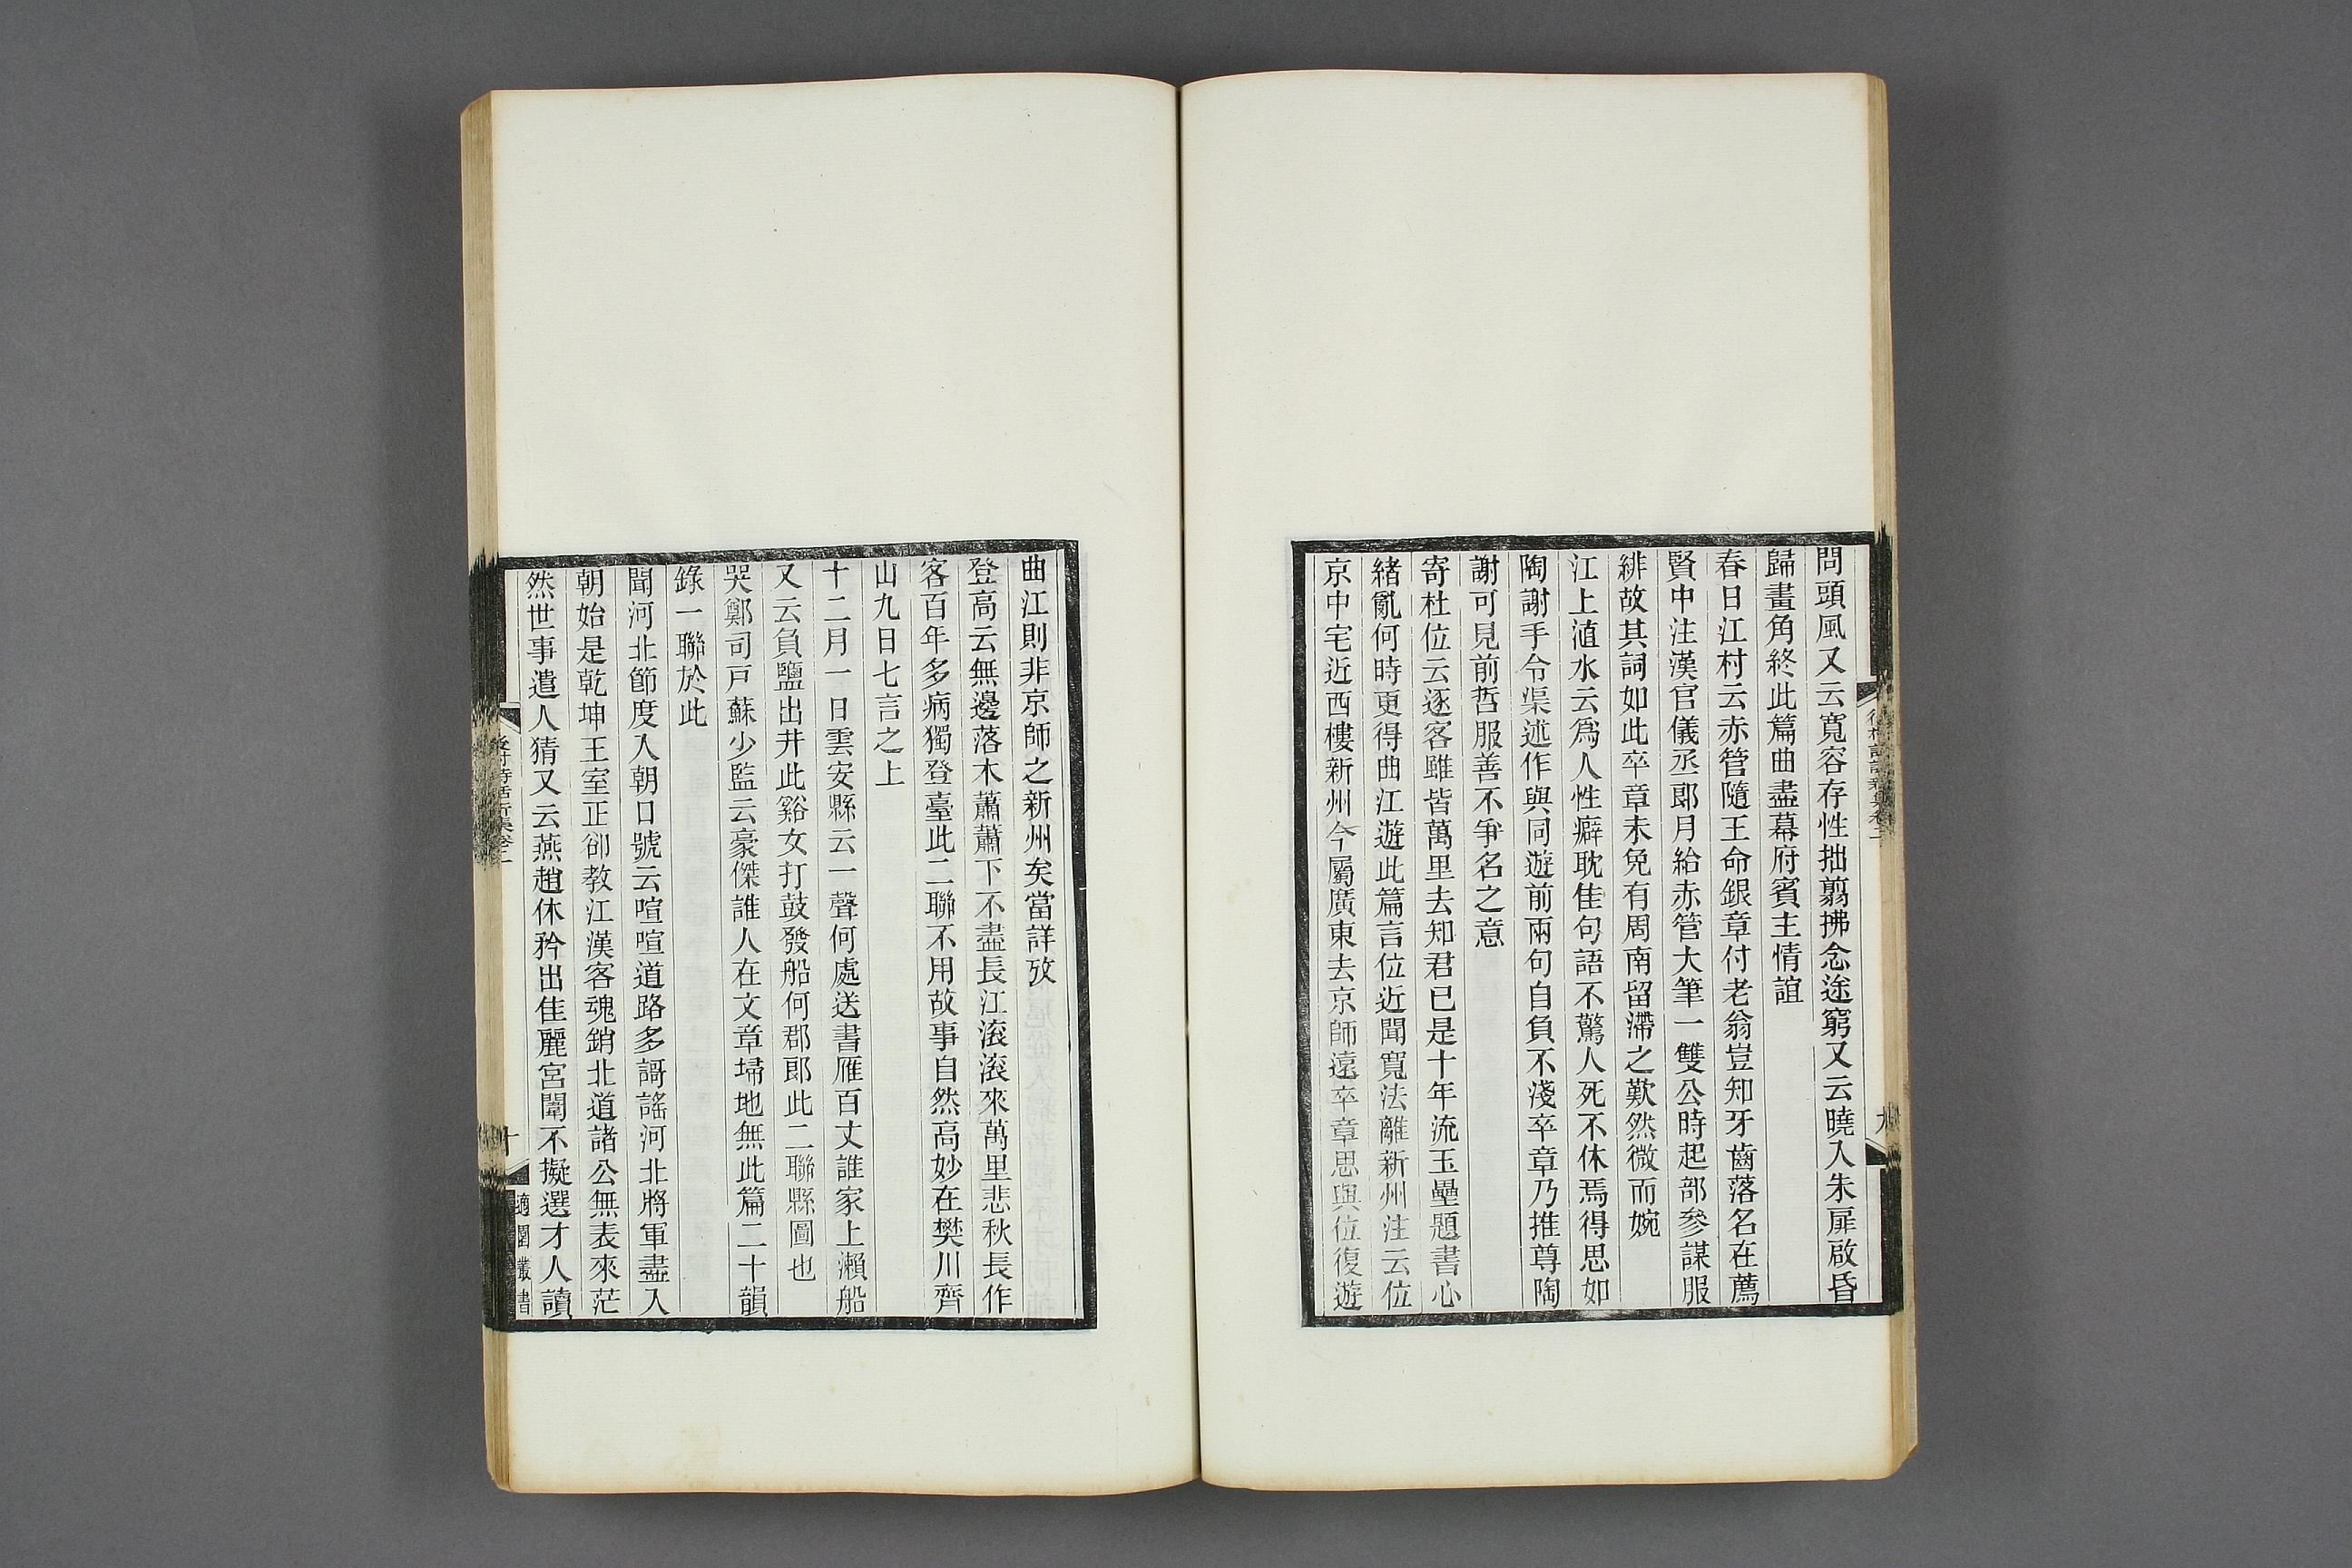 問頭風又云寬容存性拙翦拂念途窮又云曉入朱扉啟昏
歸畫角終此篇曲盡幕府賓主情誼
春日江村云赤管隨王命銀章付老翁豈知牙齒落名在薦
賢中注漢官儀丞郎月給赤管大筆一雙公時起部參謀服
緋故其詞如此卒章未免有周南留滯之歎然微而婉
江上值水云爲人性癖耽佳句語不驚人死不休焉得思如
陶謝手令渠述作與同遊前兩句自負不淺卒章乃推尊陶
謝可見前哲服善不爭名之意
寄杜位云逐客雖皆萬里去知君已是十年流玉壘題書心
緒亂何時更得曲江遊此篇言位近聞寬法離新州注云位
京中宅近西樓新州今屬廣東去京師遠卒章思與位復遊
曲江則非京師之新州矣當詳攷
登高云無邊落木蕭蕭下不盡長江滚滚來萬里悲秋長作
客百年多病獨登臺此二聯不用故事自然高妙在樊川齊
山九日七言之上
十二月一日雲安縣云一聲何處送書雁百丈誰家上瀨船
又云負鹽出井此谿女打鼓發船何郡郎此二聯縣圖也
哭鄭司戸蘇少監云豪傑誰人在文章埽地無此篇二十韻
錄一聯於此
聞河北節度入朝口號云喧喧道路多謌謠河北將軍盡入
朝始是乾坤王室正卻教江漢客魂銷北道諸公無表來茫
然世事遣人猜又云燕趙休矜出佳麗宮闈不擬選才人讀
後村詩話新集卷二
十
適園叢書